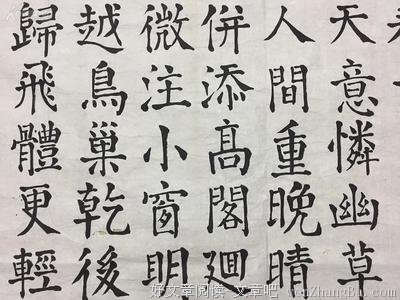 天意憐幽草
人間重晚晴
併添髙閣廻
微注小窗明
越鳥巢乾後
歸飛體更輕
好文章阅读-文章吧 wenZhangBa.com